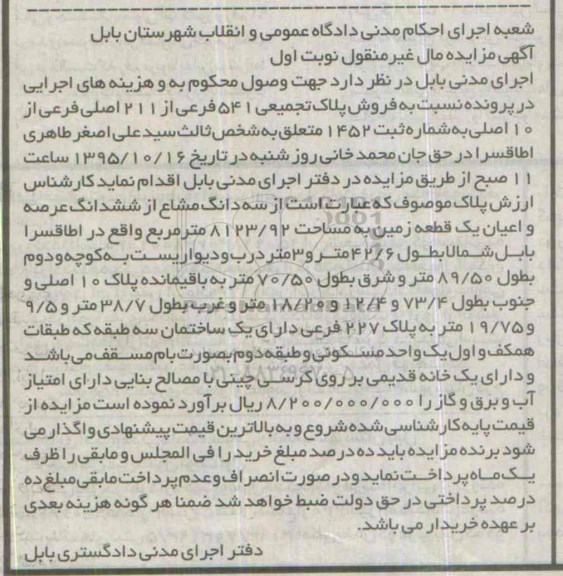 شعبه اجرای احکام مدنی دادگاه عمومی و انقلاب شهرستان بابل
آگهی مزایده مال غیرمنقول نوبت اول
اجرای مدنی بابل در نظر دارد جهت وصول محکوم به و هزینه های اجرایی
در پرونده نسبت به فروش پلاک تجمیعی ۵۴۱ فرعی از ۲۱۱ اصلی فرعی از
۱۰ اصلی به شماره ثبت ۱۴۵۲ متعلق به شخص ثالث سید علی اصغر طاهری
اطاقسرا در حق جان محمد خانی روز شنبه در تاریخ ۱۳۹۵/۱۰/۱۶ ساعت
۱۱ صبح از طریق مزایده در دفتر اجرای مدنی بابل اقدام نماید کارشناس
ارزش پلاک موصوف که عبارت است از سه دانگ مشاع از ششدانگ عرصه
و اعیان یک قطعه زمین به مساحت ۸۱۲۳/۹۲ مترمربع واقع در اطاقسرا
بابل شمالا بطول ۴۲/۶ متر و ۳متر درب و دیواریست به کوچه و دوم
بطول ۸۹/۵۰ متر و شرق بطول ۷۰/۵۰ متر به باقیمانده پلاک ۱۰ اصلی و
جنوب بطول ۷۳/۴ و ۱۲/۴ و ۱۸/۲۰ متر و غرب بطول ۳۸/۷ متر و ۹/۵
و ۱۹/۷۵ متر به پلاک ۲۲۷ فرعی دارای یک ساختمان سه طبقه که طبقات
همکف و اول یک واحد مسکونی و طبقه دوم بصورت بام مسقف می باشد
و دارای یک خانه قدیمی بر روی کرسی چینی با مصالح بنایی دارای امتیاز
آب و برق و گاز را ۸/۲۰۰/۰۰۰/۰۰۰ ریال برآورد نموده است مزایده از
قیمت پایه کارشناسی شده شروع و به بالاترین قیمت پیشنهادی واگذار می
شود برنده مزایده باید ده درصد مبلغ خرید را فی المجلس و مابقی را ظرف
یک ماه پرداخت نماید و در صورت انصراف و عدم پرداخت مابقی مبلغ ده
درصد پرداختی در حق دولت ضبط خواهد شد ضمنا هر گونه هزینه بعدی
بر عهده خریدار می باشد.
دفتر اجرای مدنی دادگستری بابل